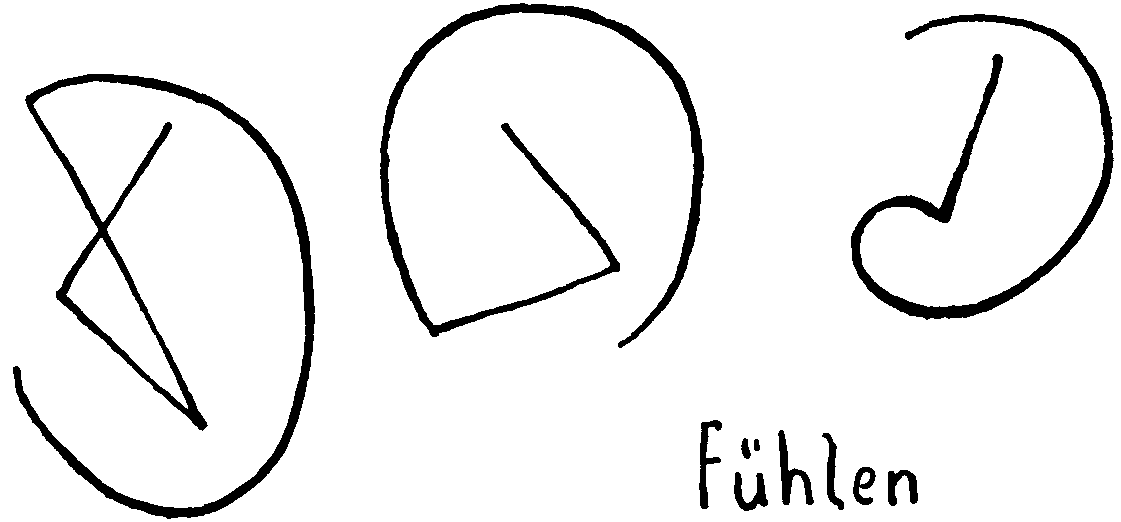 Fühlen